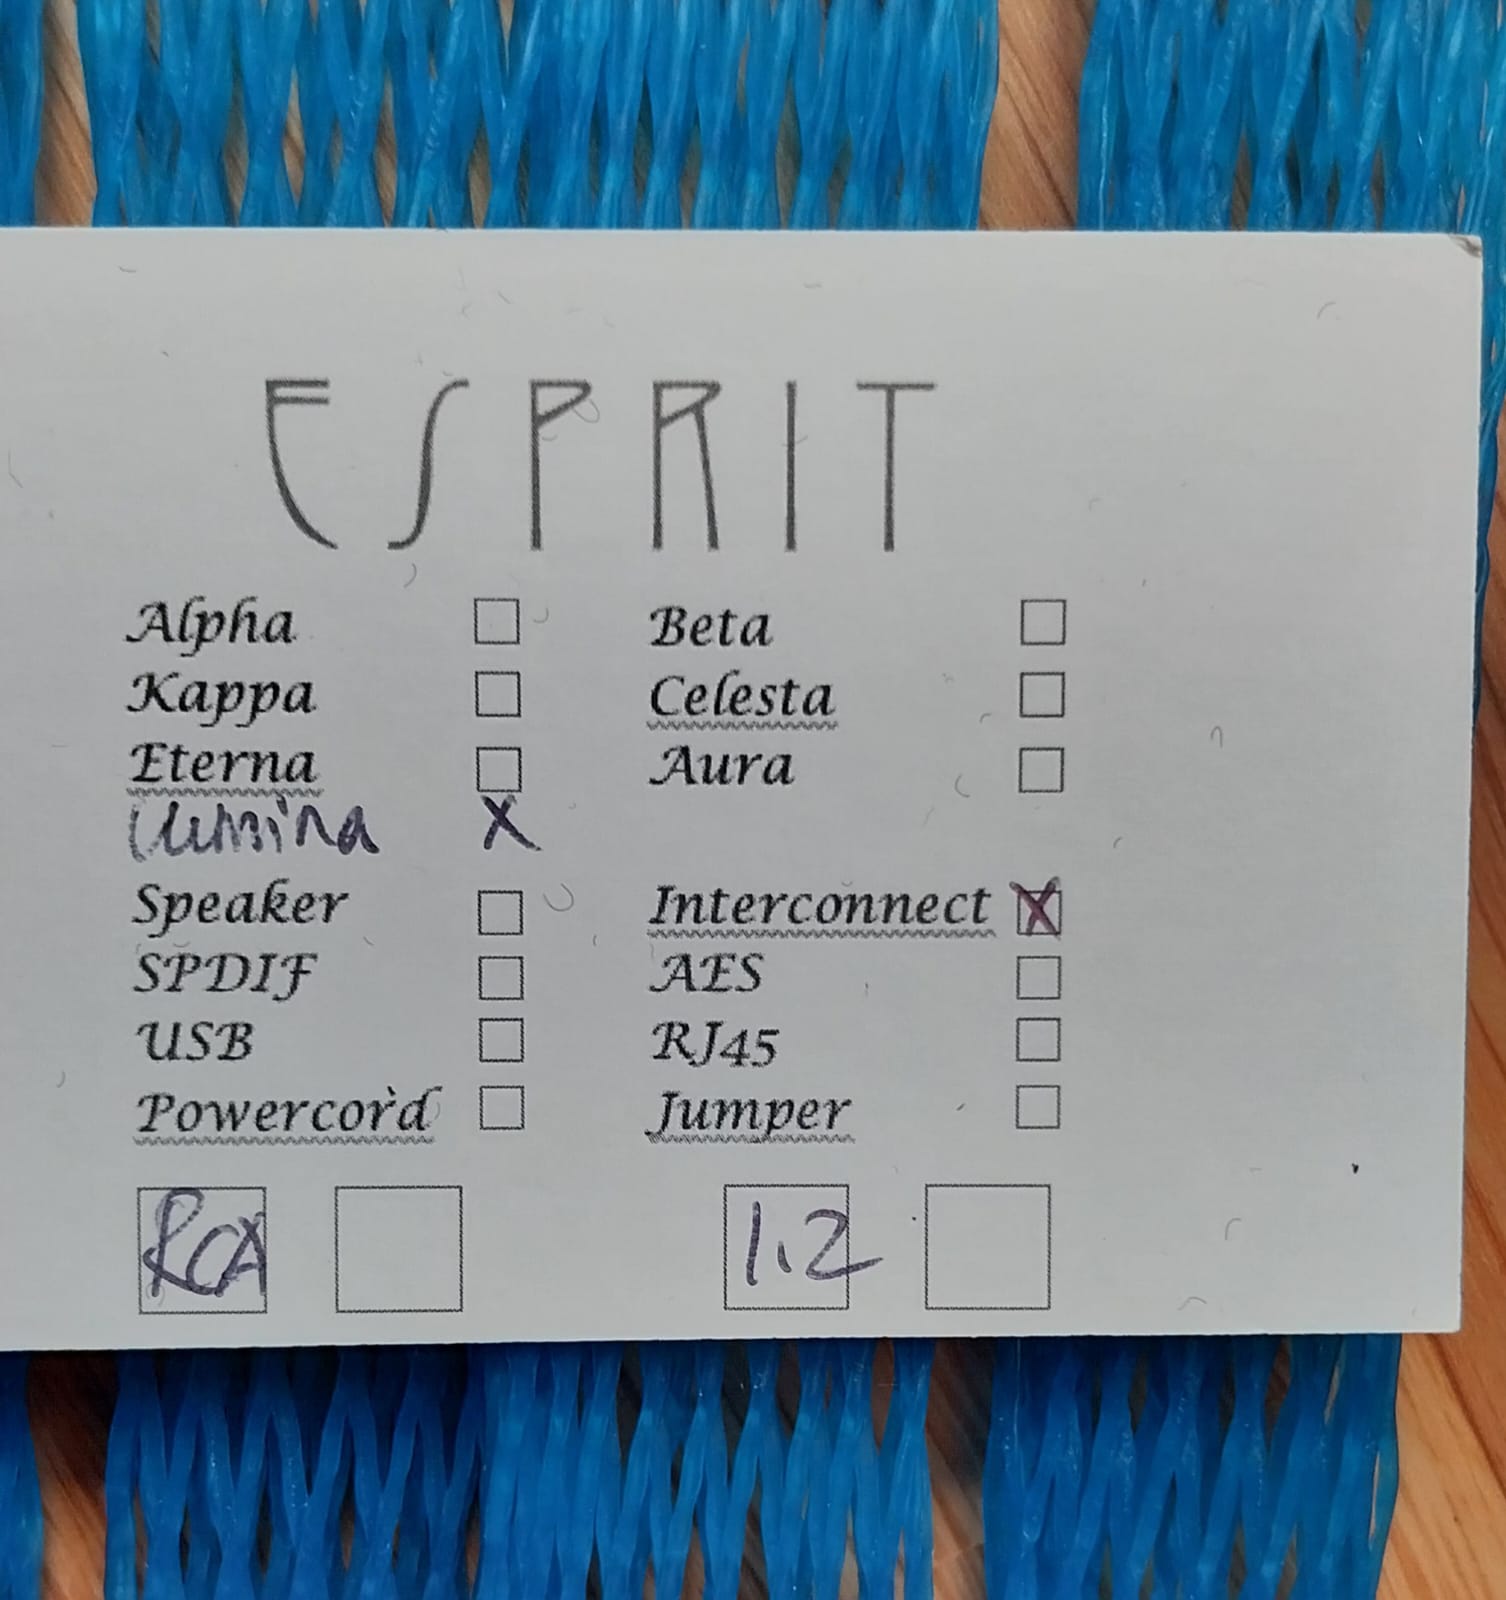 ESPRIT
Alpha ☐ Beta ☐
Kappa ☐ Celesta ☐
Eterna ☐ Aura ☐
Lumina X
Speaker ☐ Interconnect ☒
SPDIF ☐ AES ☐
USB ☐ RJ45 ☐
Powercord ☐ Jumper ☐
RCA 1.2